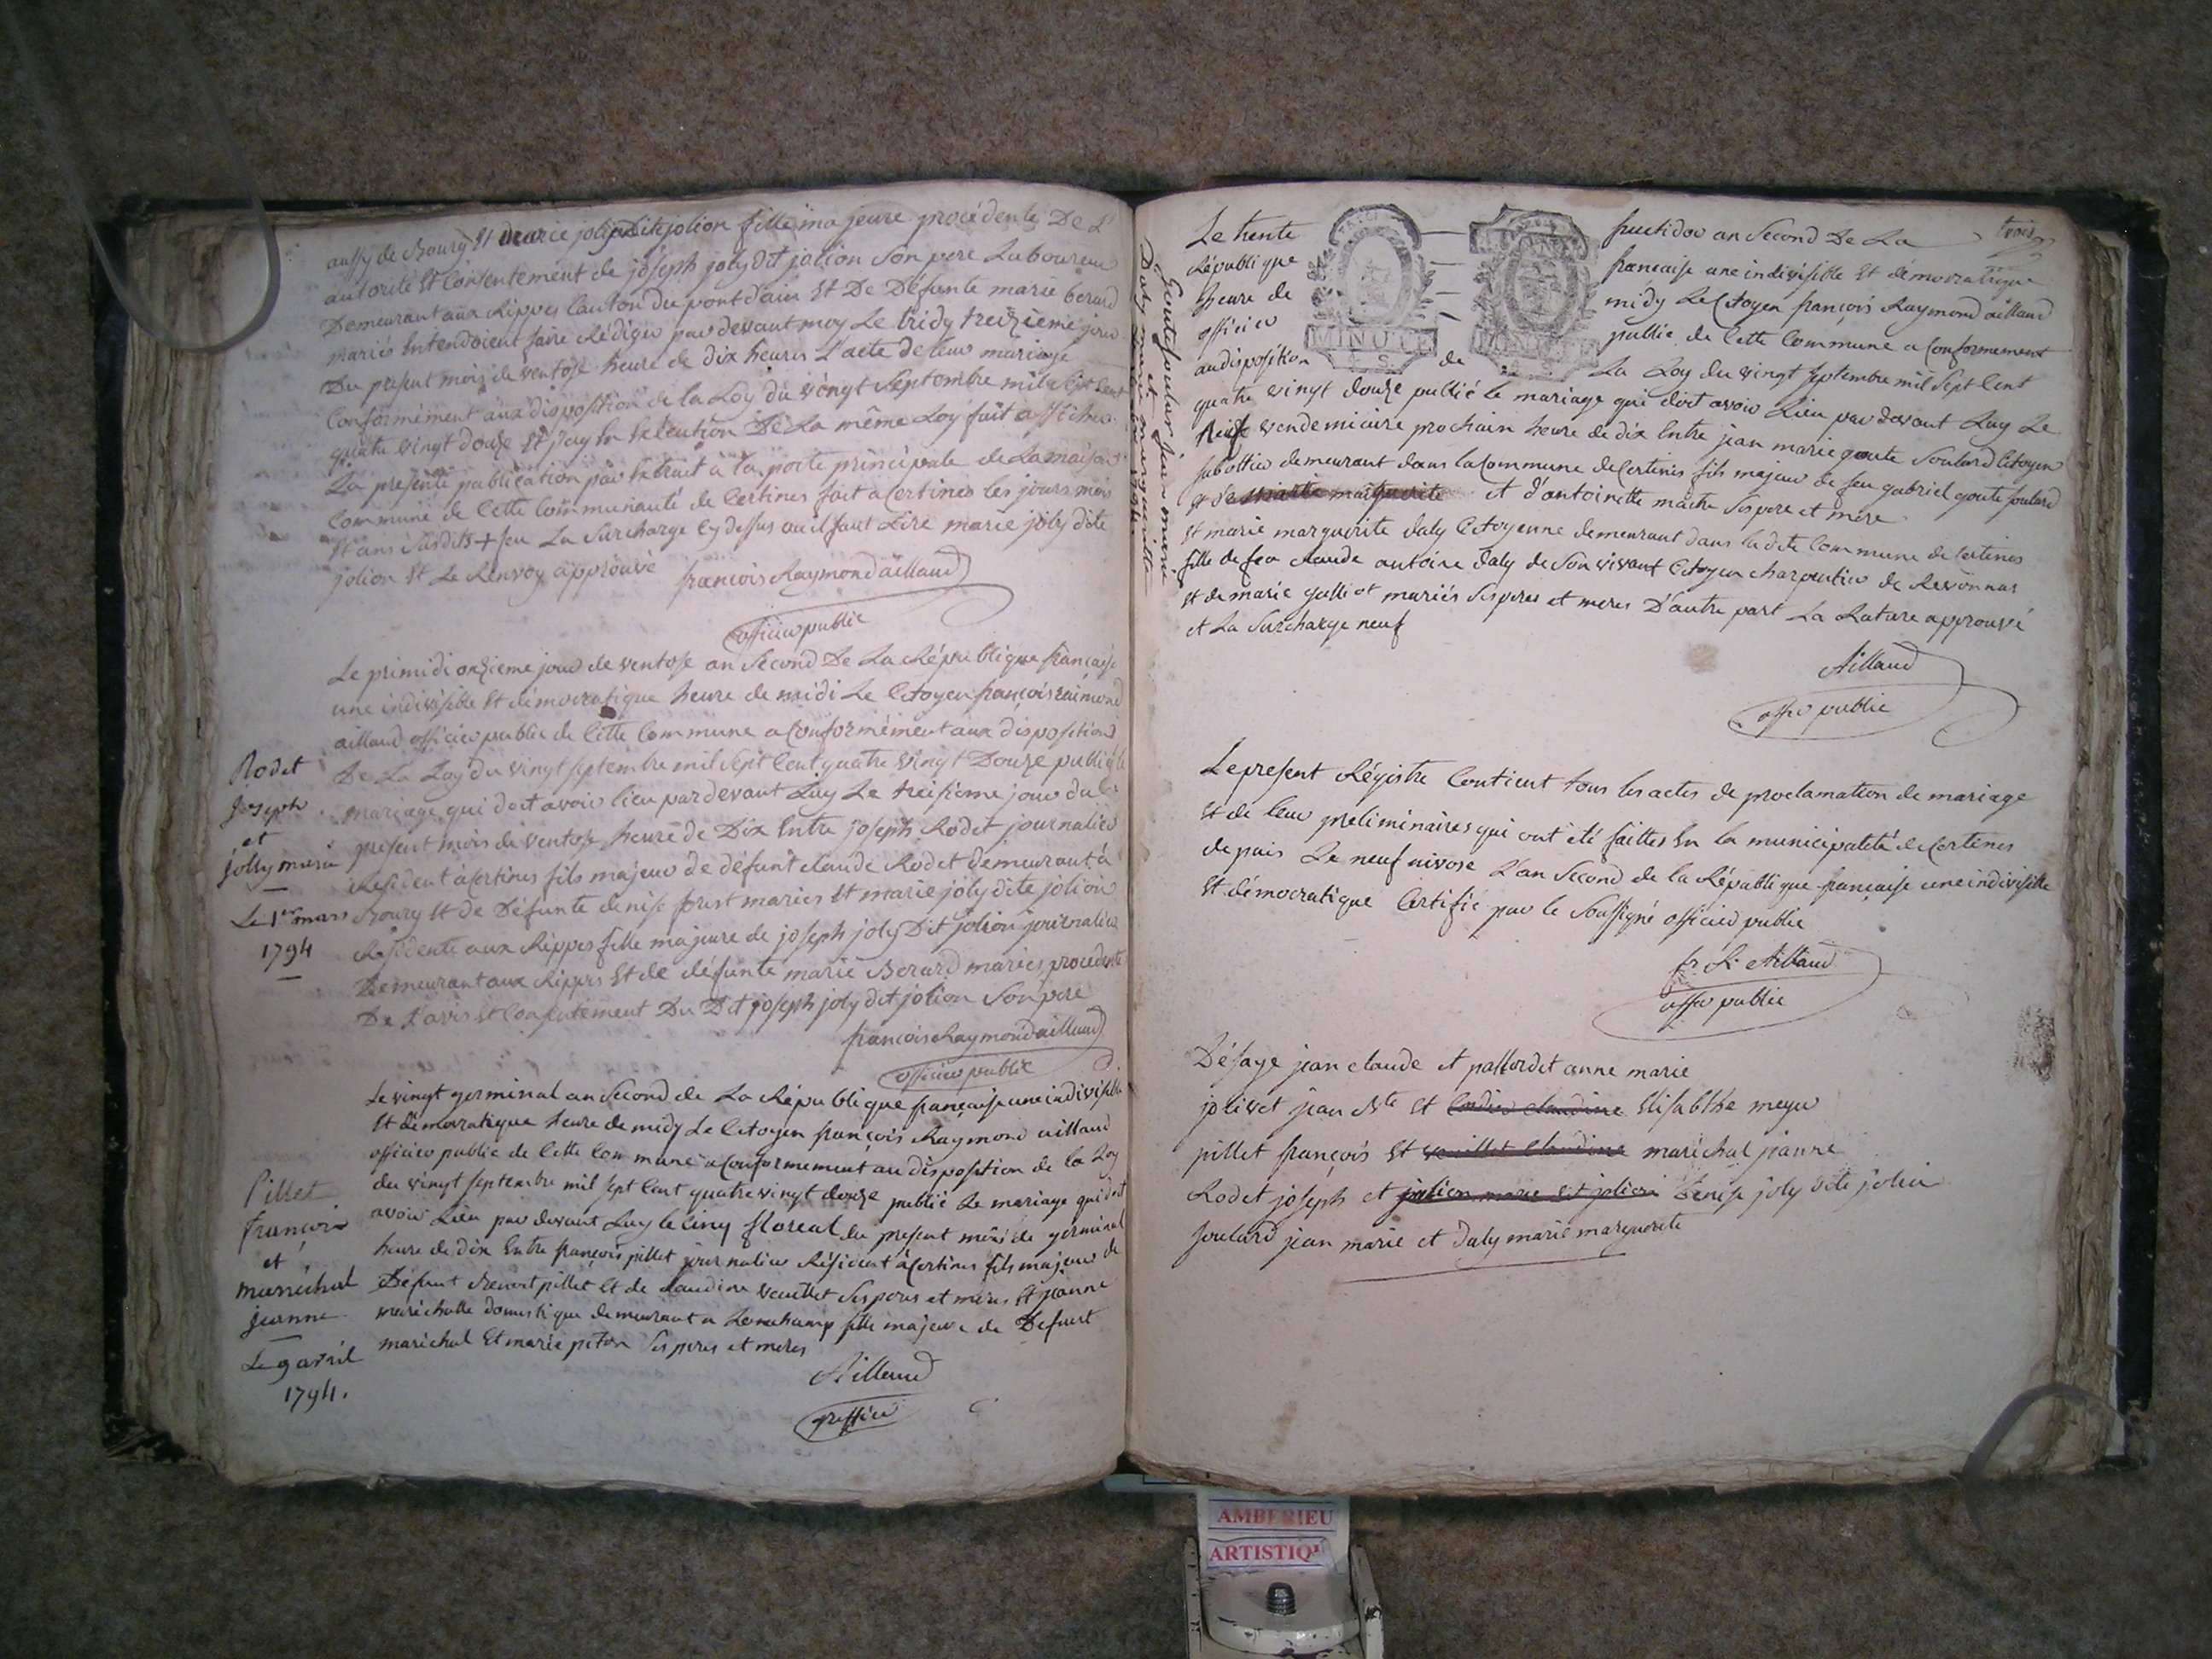 aussy de Bourg Et marie jolipdite jolion fille majeure procédente De L'
autorité Et Consentement de joseph joly dit jolion Son pere Laboureur
Demeurant aux Rippes Canton du pont d'ain Et De Défunte marie berard
mariés Entendoient faire Rédiger par devant moy Le tridy treizieme jour
Du present mois de ventose heure de dix heures L'acte de leur mariage
Conformément aux disposition de la Loy du vingt Septembre mil Sept Cent
quatre vingt douze Et j'ay En Exécution De La même Loy fait afficher
La présente publication par Extrait à la porte principale de La maison
Commune de Cette Communauté de Certines fait a Certines les jours mois
Et ans Susdits + La Surcharge Cy dessus ou il faut Lire marie joly dite
jolion Et Le Renvoy approuvé françois Raymond aillaud
officier public
Le primidi onzieme jour de ventose an Second De La République française
une indivisible Et démocratique heure de midi Le Citoyen françois raimond
aillaud officier public de Cette Commune a Conformément aux dispositions
De La Loy du vingt Septembre mil Sept Cent quatre vingt Douze publié le
mariage qui doit avoir lieu par devant Luy Le treisieme jour du
present mois de ventose heure de Dix Entre joseph Rodet journalier
Résident à Certines fils majeur de défunt claude Rodet demeurant à
Bourg Et de Défunte denise mariés Et marie joly dite jolion
Résidente aux Rippes fille majeure de joseph joly Dit jolion journalier
Demeurant aux Rippes Et de défunte marie Berard mariés, procedente
De L'avis Et Consentement Du Dit joseph joly dit jolion Son pere
françois Raymond aillaud
officier public
Rodet
Joseph
et
Jolly marie
Le 1er mars
1794
Le vingt germinal an Second de La République française une indivisible
Et démocratique heure de midy Le Citoyen françois Raymond aillaud
officier public de Cette Commune a Conformement au disposition de la Loy
du vingt Septembre mil Sept Cent quatre vingt douze publié Le mariage qui doit
avoir Lieu par devant Luy le Cinq floreal du present mois de germinal
heure de dix Entre françois pillet journalier Résident à Certines fils majeur de
Défunt Benoit pillet Et de Claudine vuillet Ses peres et meres Et jeanne
maréchalle domestique demeurant a Lonchamp fille majeure de Defunt
maréchal Et marie piton Ses peres et meres
Aillaud
greffier
Pillet
françois
et
maréchal
jeanne
Le 9 avril
1794.
Goutesoular jean marie
et
Daly marie marguerite
trois
Le trente fructidor an Second De La
République francaise une indivisible Et démocratique
heure de midy Le Citoyen françois Raymond aillaud
officier public de Cette Commune a Conformement
au disposition de La Loy du vingt Septembre mil Sept Cent
MINUTE
quatre vingt douze publié le mariage qui doit avoir Lieu par devant Luy Le
neuf vendemiaire prochain heure de dix Entre jean marie goute Soulard Citoyen
Sabottier demeurant dans la Commune de Certines fils majeur de feu gabriel goute soulard
marguerite et d'antoinette maitre Ses pere et mere
Et marie marguerite daly Citoyenne demeurant dans ladite Commune de Certines
fille de feu claude antoine Daly de Son vivant Citoyen charpentier de Revonnas
Et de marie gulliot mariés Ses peres et meres D'autre part La Rature approuvé
et La Surcharge neuf
Aillaud
offier public
Le present Régistre Contient tous les actes de proclamation de mariage
Et de leur preliminaires qui ont été faittes En la municipalité de Certines
depuis Le neuf nivose L'an Second de la République française une indivisible
Et démocratique Certifié par le Soussigné officier public
fr R. Aillaud
offier public
Défaye jean claude et pallordet anne marie
jolivet jean Bte Et Elisabthe meyer
pillet françois Et vuillet Claudine maréchal jeanne
Rodet joseph et jolion marie dit jolion Denise joly dite jolion
Soulard jean marie et Daly marie marguerite
AMBERIEU
ARTISTIQU